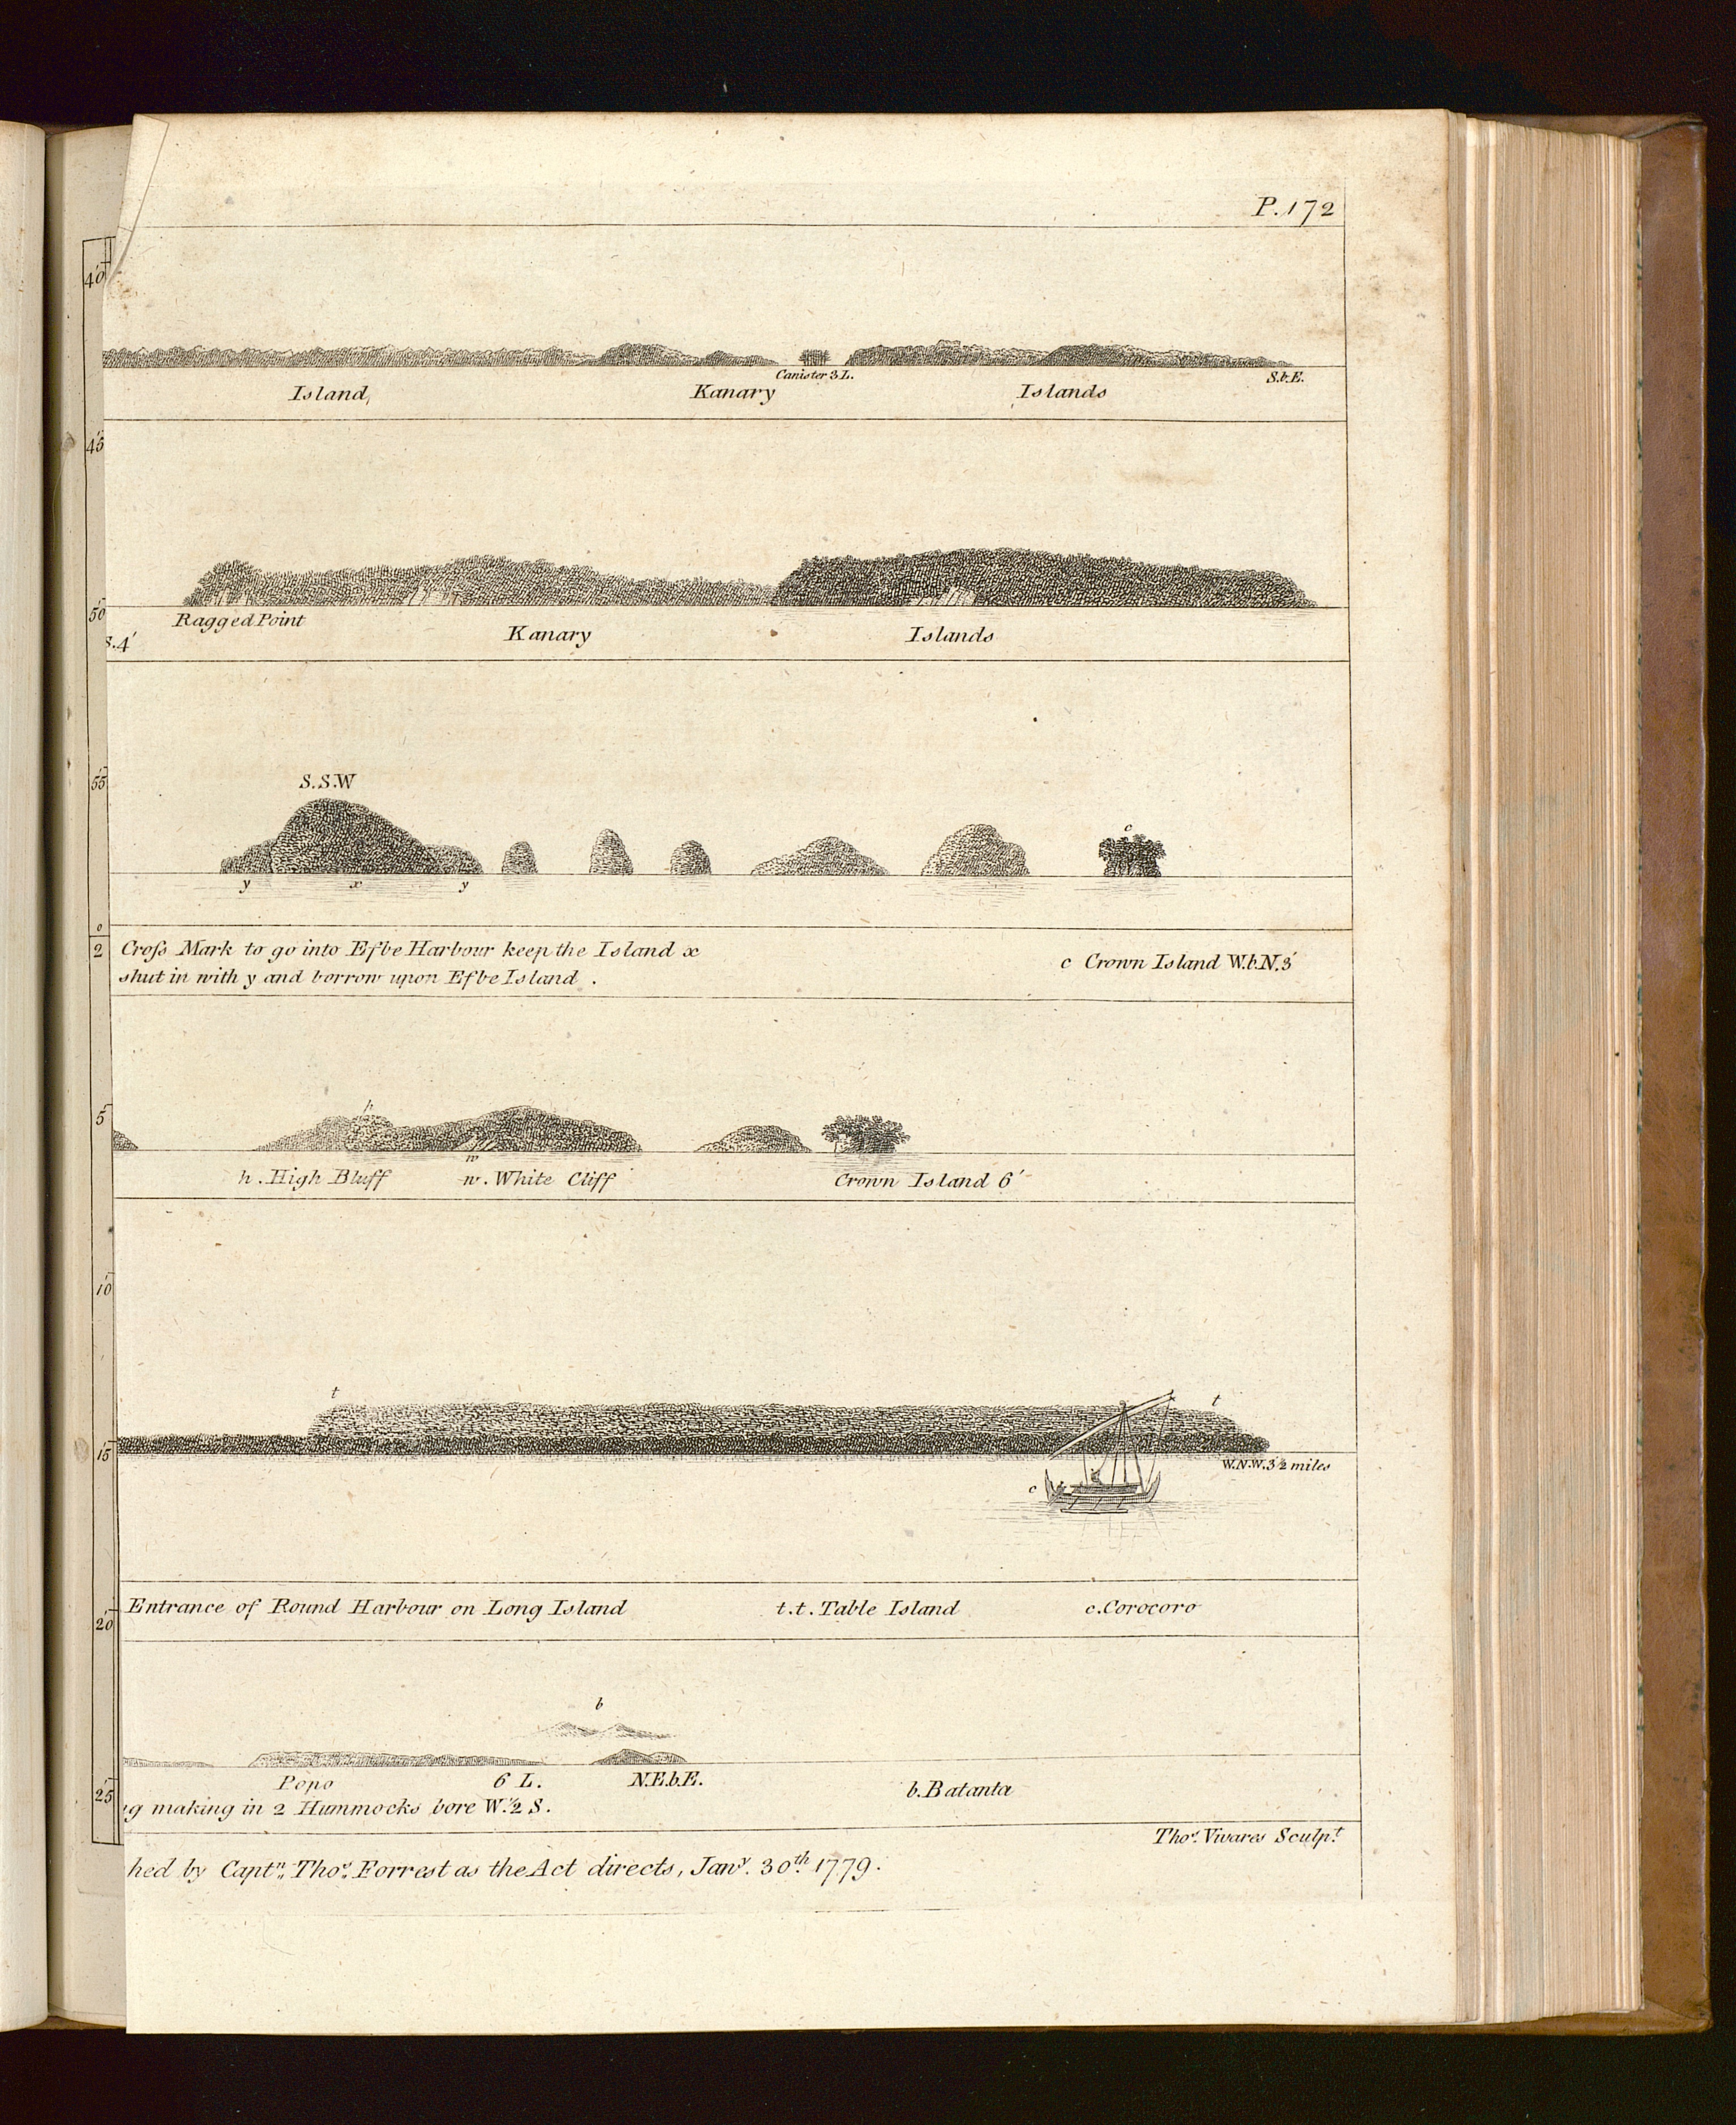 P.172
40
Canister 3 L.
S.b.E.
Island,
Kanary
Islands
45
50
Ragged Point
S.4'
Kanary
Islands
55
S.S.W
c
y
x
y
0
2
Cross Mark to go into Efbe Harbour keep the Island x
shut in with y and borrow upon Efbe Island .
c Crown Island W.b.N.3'
5
h
w
h . High Bluff
w . White Cliff
Crown Island 6'
10
t
t
15
W.N.W. 3 1/2 miles
c
20
Entrance of Round Harbour on Long Island
t.t. Table Island
c. Corocoro
b
Popo
6 L.
N.E.b.E.
b. Batanta
25
g making in 2 Hummocks bore W. 1/2 S.
Thos. Vivares Sculpt.
hed by Captn. Thos. Forrest as the Act directs, Jany. 30th. 1779.